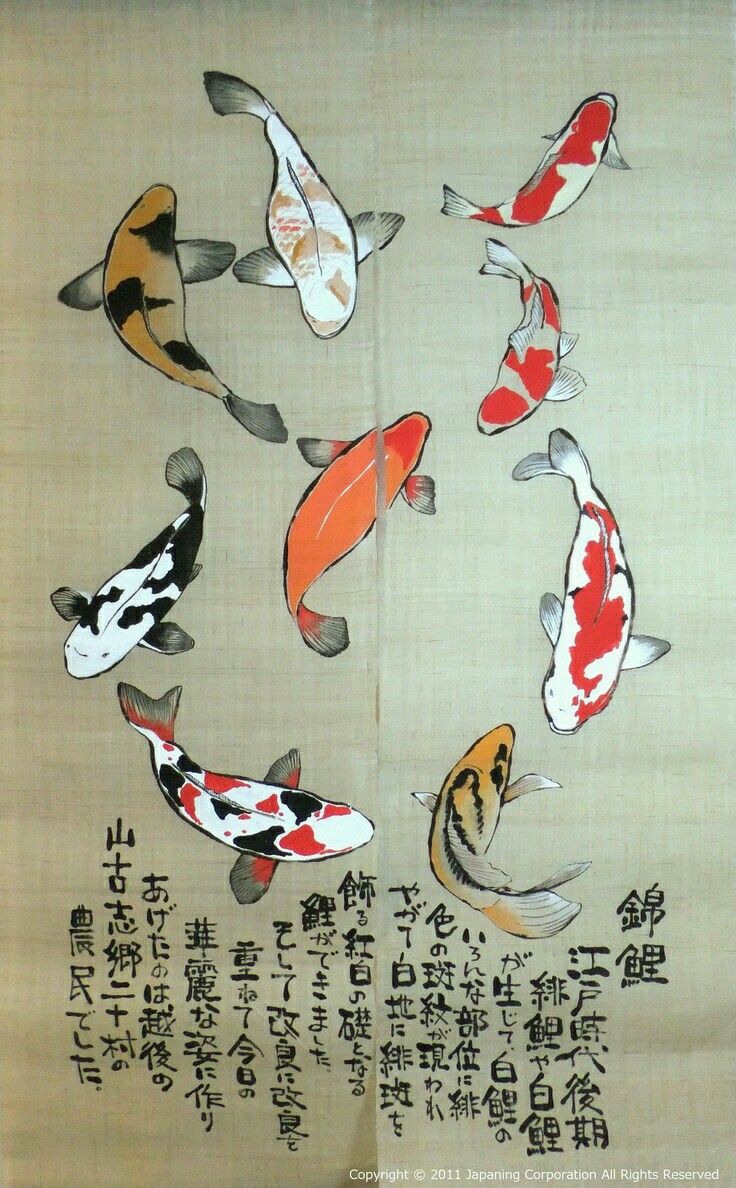 錦鯉
江戸時代後期
緋鯉や白鯉
が生じて、白鯉の
いろんな部位に緋
色の斑紋が現われ
やがて白地に緋斑を
飾る紅白の礎となる
鯉ができました。
そして改良に改良を
重ねて今日の
華麗な姿に作り
あげたのは越後の
山古志郷二十村の
農民でした。
Copyright © 2011 Japaning Corporation All Rights Reserved